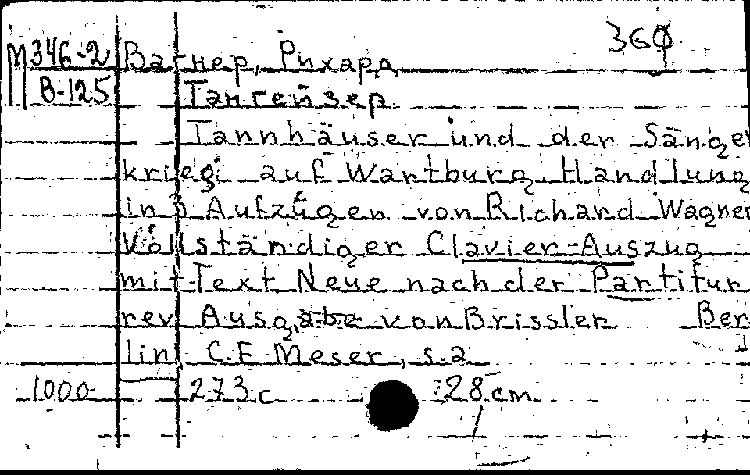 360
М346-2 Вагнер, Рихард
В-125 Тангейзер
Tannhäuser und der Sänger
krieg auf Wartburg Handlung
in 3 Aufzügen von Richard Wagner
Vollständiger Clavier-Auszug
mit Text Neue nach der Partitur
rev Ausgabe von Brissler Ber
lin, C.F. Meser, s.a
1000- 273 с 28 cm